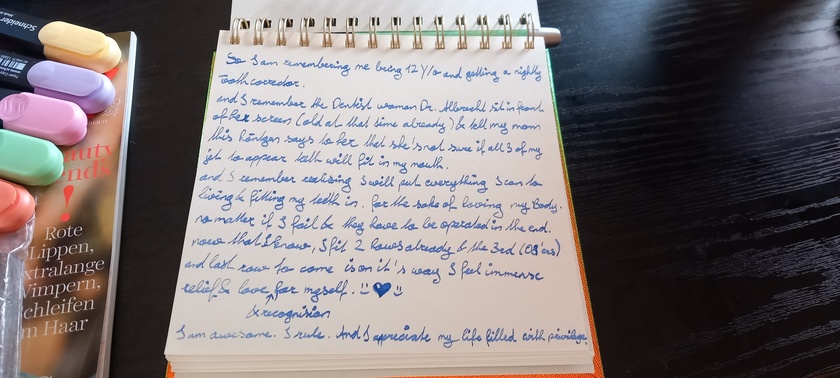 Schneider
auty
ends
!
Rote
Lippen,
xtralange
Vimpern,
chleifen
m Haar
So I am remembering me being 12 y/o and getting a nightly
tooth corredor.
and I remember the Dentist woman Dr. Albrecht sit in front
of her screen (old at that time already) & tell my mom
this Röntgen says to her that she's not sure if all 3 of my
jet to appear teeth will fit in my mouth.
and I remember realising I will put everything I can to
living & fitting my teeth in. for the sake of loving my Body.
no matter if I fail & they have to be operated in the end.
now that I know, I fit 2 Rows already & the 3rd (08'ers)
and last row to come is on it's way I feel immense
relief & love for myself.
& recognision
I am awesome. I rule. And I appreciate my life filled with privilege